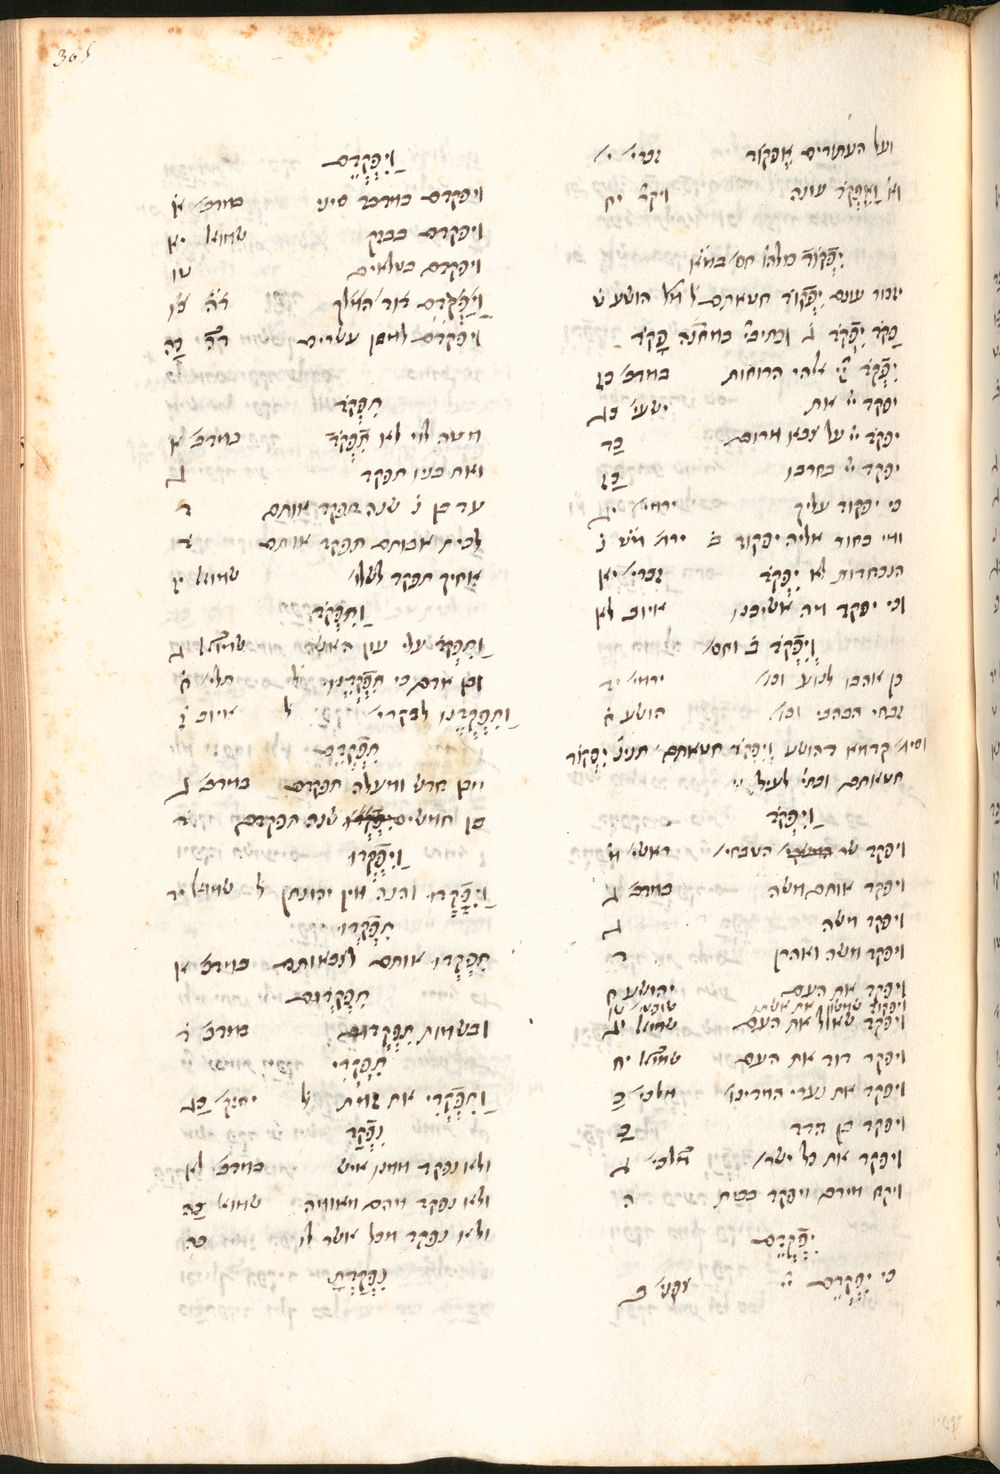 ועל העתודים אֶפקוד זכרי׳ י׳
וָאֶפְקֹד עונה ויקר׳ יח
יִפְקוֹד מלה׳ חס׳ במ׳
יזכור עונם יִפְקוֹד חטאתם ל׳ מל׳ הושע ט
פָּקֹד יִפְקֹד
יִפְקֹד יי׳ אלהי הרוחות במדב׳ כז
יפקד יי׳ את ישעי׳ כג
יפקד יי׳ על צבא מרום כד
יפקד יי׳ בחרבו כז
כי יפקוד עליך ירמי׳ יג
ומי בחור אליה יפקוד ב׳ ירמ׳ מ״ט נ
הנכחדות לא יִפְקֹד זכרי׳ יא
וכי יפקד מה אשיבנו איוב לא
וְיִפְקֹד ב׳ וחס׳
כן אהבו לנוע וכו׳ ירמי׳ יד
זבחי הבהבי וכו׳ הושע ח
וסי׳ קדמא דהושע וְיִפְקֹד חטאתם תנינ׳ יִפְקוֹד
חטאתם וכתי׳ לעיל
וַיִּפְקֹד
ויפקד שר הטבחי׳ ראשי׳ מ
ויפקד אותם משה במדב׳ ג
ויפקד משה ג
ויפקד משה ואהרן ד
ויפקד את העם יהושע ח
ויפקוד שמשון את אשתו שופט׳ טו
ויפקד שאול את העם שמוא׳ יג
ויפקד דוד את העם שמ״ב יח
ויפקד את נערי המדינו׳ מלכ׳ כ
ויפקד בן הדד כ
ויפקד את כל ישר׳ מ״ב׳ ג
ויקח מידם ויפקד בבית ה
יִפְקְדֵם
כי יִפְקְדֵם יי׳ צפני׳ ב
305
וַיִּפְקְדֵם
ויפקדם במדבר סיני במדב׳ א
ויפקדם בבזק שמוא׳ יא
ויפקדם בטלאים טו
וַיַּפְקִדֵם דור המלך
וַיִּפְקְדֵם למבן עשרים דה״ב כה
תִּפְקֹד
מטה לוי לא תִפְקֹד במדב׳ א
ואת בניו תפקד ג
עד בן נ׳ שנה תפקד אותם ד
לבית אבותם תפקד אותם ד
אחיך תפקד לשלו׳ שמוא׳ יז
וַתִּפְקֹד
וַתִּפְקֹד עלי עון האשה שמ״ב ג
ובן אדם כי תִפְקְדֶנּוּ ל׳ תלי׳ ח
וַתִּפְקְדֶנּוּ לבקרי׳ ל׳ איוב ז
תִּפְקְדֵם
מבן חדש ומעלה תפקדם במדב׳ ג
בן חמשים שנה תפקדם ד
וַיִּפְקְדוּ
וַיִּפְקְדוּ והנה אין יהונתן ל׳ שמוא׳ יד
תִּפְקְדוּ
תִּפְקְדוּ אותם לצבאותם במדב׳ א
תִּפְקְדוּם
ובשמות תִּפְקְדוּ במדב׳ ד
תִּפְקְדִי
וַתִּפְקְדִי את זמת ל׳ יחזק׳ כג
נִפְקַד
ולא נפקד ממנו איש במדב׳ לא
ולא נפקד מהם מאומה שמוא׳ כה
ולא נפקד מכל אשר לו כה
נִפְקַדְתָּ